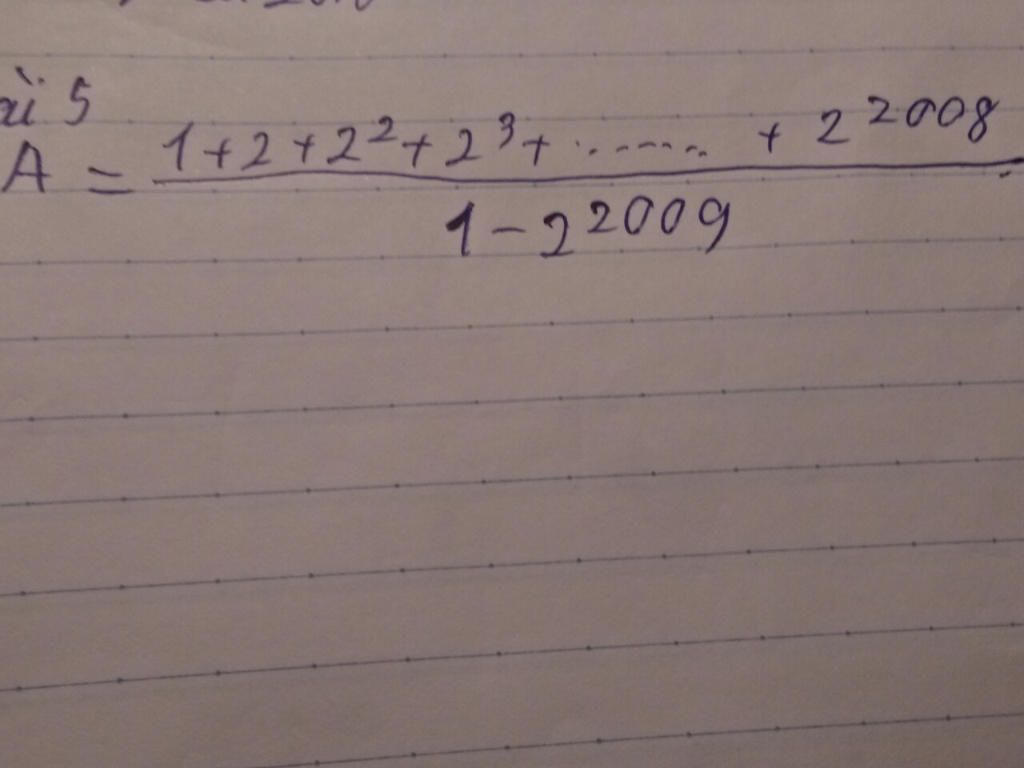 ài 5
A = 1+2+2²+2³+.......+2²⁰⁰⁸
1-2²⁰⁰⁹